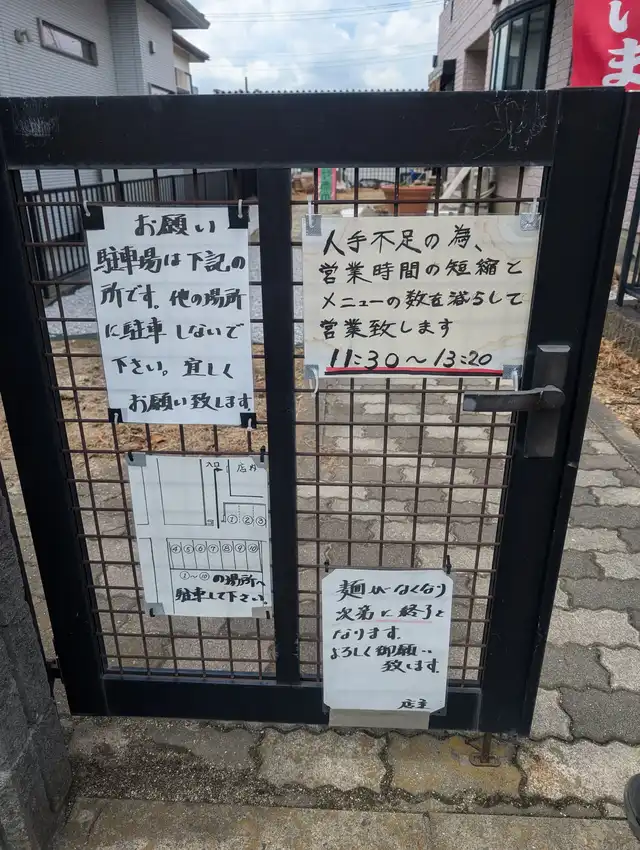 お願い
駐車場は下記の
所です。他の場所
に駐車しないで
下さい。宜しく
お願い致します
人手不足の為、
営業時間の短縮と
メニューの数を減らして
営業致します
11:30〜13:20
入口 店内
① ② ③
④ ⑤ ⑥ ⑦ ⑧ ⑨ ⑩
①〜⑩の場所へ
駐車して下さい。
麺がなくなり
次第と終了と
なります。
よろしく御願い
致します。
店主
いま